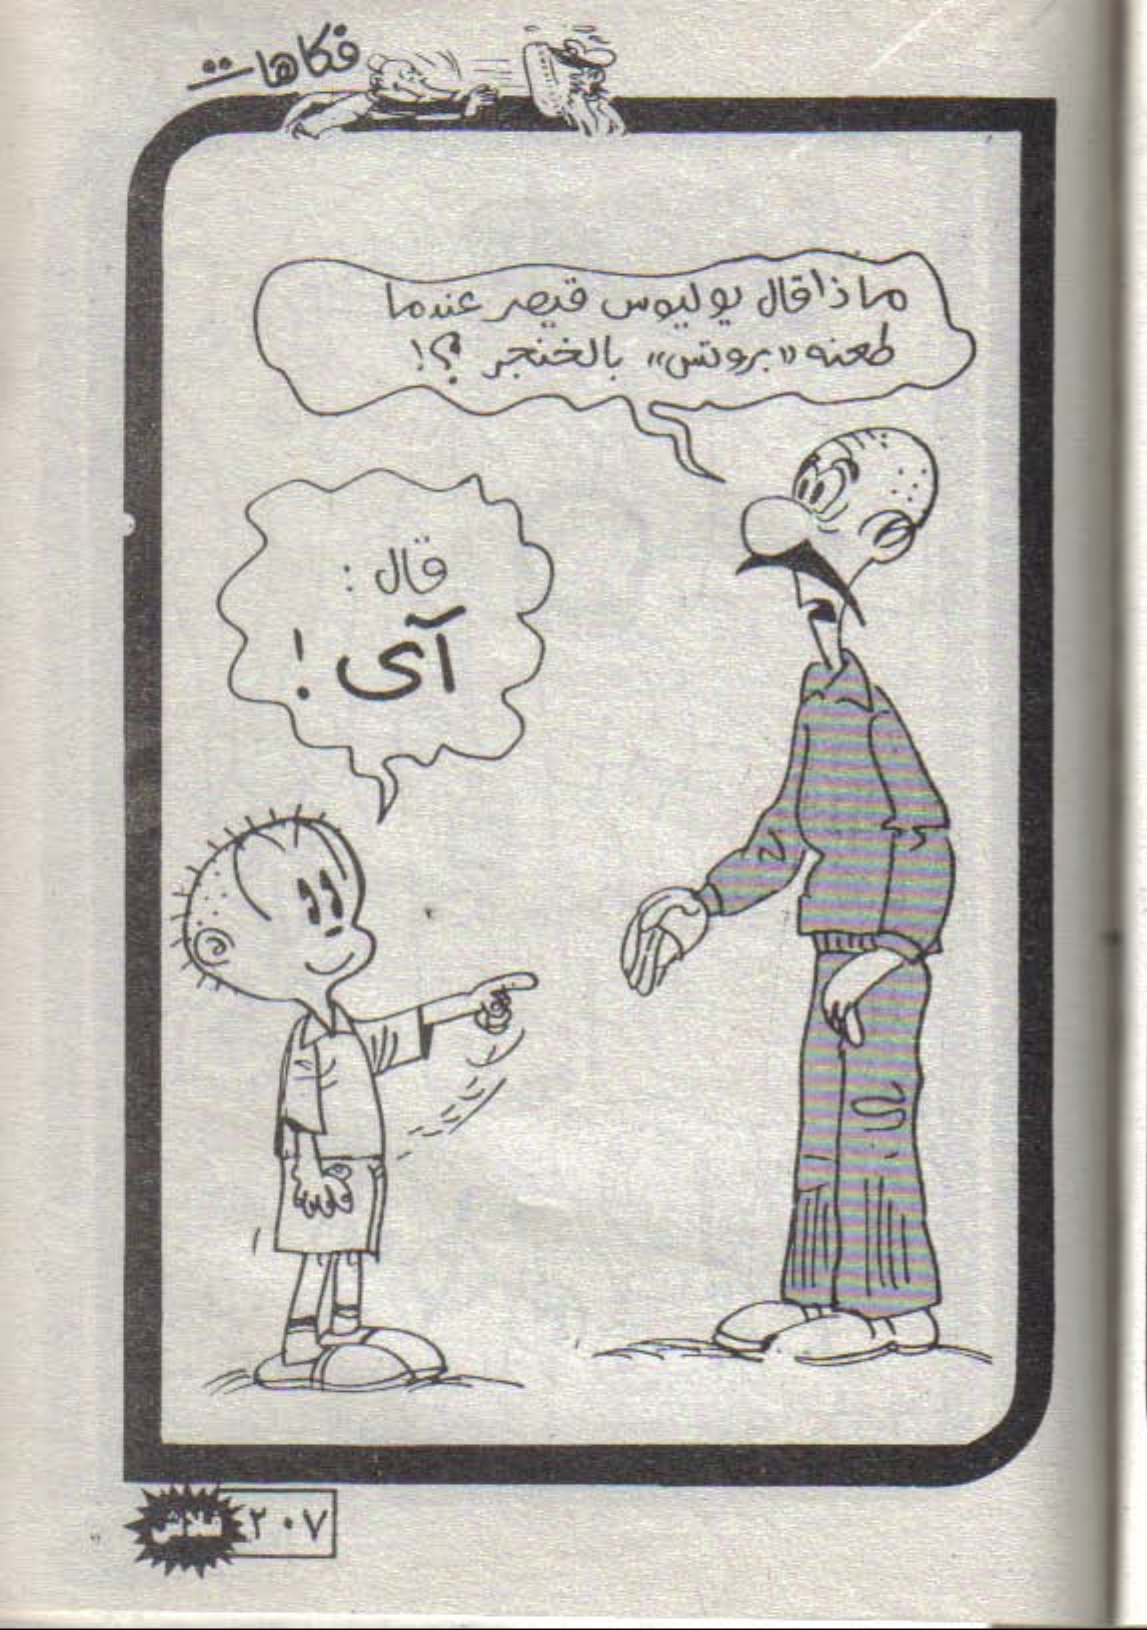 فكاهات
ماذا قال يوليوس قيصر عندما
طعنه «بروتس» بالخنجر ؟!
قال :
آى !
٢٠٧